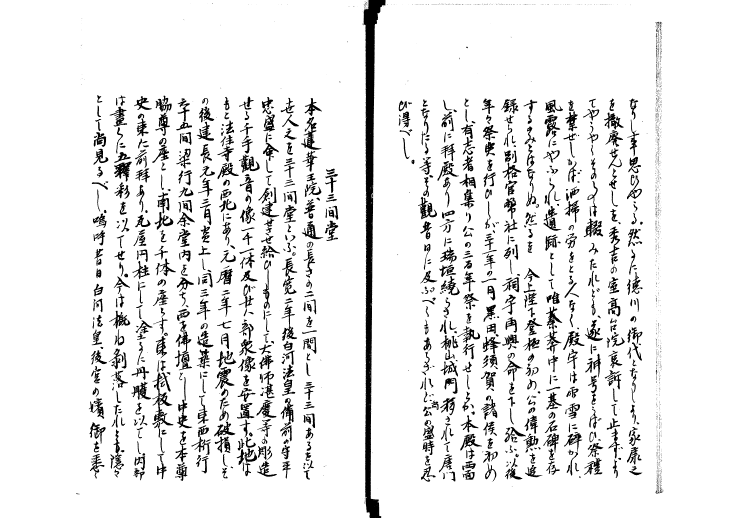 なりし事思ひやらる、然るに徳川の御代となりしより、家康之
を撤廃せんとせしを、秀吉の室高台院哀訴して止ま
てやみしかど、その後は毀みたれども、遂に神号をうばひ、祭礼
を棄ぜしかば、洒掃の労をとる人なく、殿宇は雨雪に砕かれ、
風露にやぶられ、遺跡として唯蓁莽中に一基の石碑を存
するのみとはなりぬ、然るを 今上陛下登極の初め、公の偉勲を追
録せられ、別格官幣社に列し、祠宇再興の命を下し給ふ、以後
年々祭典を行ひしが、三十一年の一月黒田蜂須賀の諸侯を初め
とし、有志者相集り公の三百年祭を執行せしとか、本殿は西面
し、前に拝殿あり、四方に瑞垣繞らされ、桃山城門移されて唐門
となりたり、等その観昔日に及ぶべくもあらざれど、公の盛時を思
ひ得べし。
三十三間堂
本名蓮華王院普通の長さの二間を一間とし三十三間あるを以て
世人之を三十三間堂といふ。長寛二年後白河法皇の備前の守平
忠盛に命して創建せさせ給ひしものにして、大佛師湛慶等の彫造
せる千手観音の像一千一体及び廿八部衆像を安置す。此地は
もと法住寺殿の西北にあり、元暦二年七月地震のため破損しそ
の後建長元年三月炎上し同三年の造築にして東西桁行
六十五間梁行九間余堂内を分ち西を佛壇とし中央を本尊
脇尊の座とし、南北を千体の座とす。東は拭板敷にして中
央の東に前拝あり、瓦屋円柱にして塗るに丹雘を以てし内部
は畫くに五彩を以てせり。今は概ね剥落したれども、隠々
として尚見るべし、嗚呼昔日白河法皇後宮の嬪御を悉く